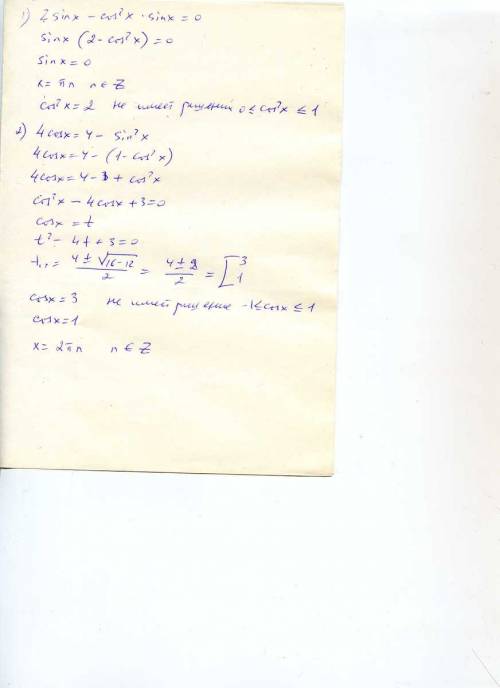 1) 2 sinx - cos²x · sinx = 0
sinx (2 - cos²x) = 0
sinx = 0
x = πn n ∈ Z
cos²x = 2 не имеет решений 0 ≤ cos²x ≤ 1
2) 4cosx = 4 - sin²x
4cosx = 4 - (1 - cos²x)
4cosx = 4 - 1 + cos²x
cos²x - 4cosx + 3 = 0
cosx = t
t² - 4t + 3 = 0
t₁,₂ = (4 ± √(16-12))/2 = (4 ± 2)/2 = [3 1
cosx = 3 не имеет решение -1 ≤ cosx ≤ 1
cosx = 1
x = 2πn n ∈ Z